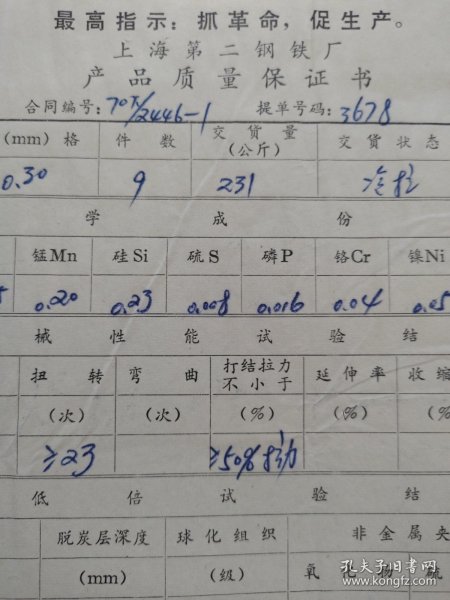 最高指示：抓革命，促生产。
上海第二钢铁厂
产品质量保证书
合同编号：70T/2446-1 提单号码：3678
(mm)格 件数 交货量(公斤) 交货状态
0.30 9 231 冷拉
学成份
锰Mn 硅Si 硫S 磷P 铬Cr 镍Ni
0.20 0.23 0.008 0.016 0.04 0.05
械性能试验结
扭转 弯曲 打结拉力不小于 延伸率 收缩
(次) (次) (%) (%) (%
≥23 ≥50%
低倍试验结
脱炭层深度 球化组织 非金属夹
(mm) (级) 氧化物 硫
孔夫子旧书网
www.kongfz.com